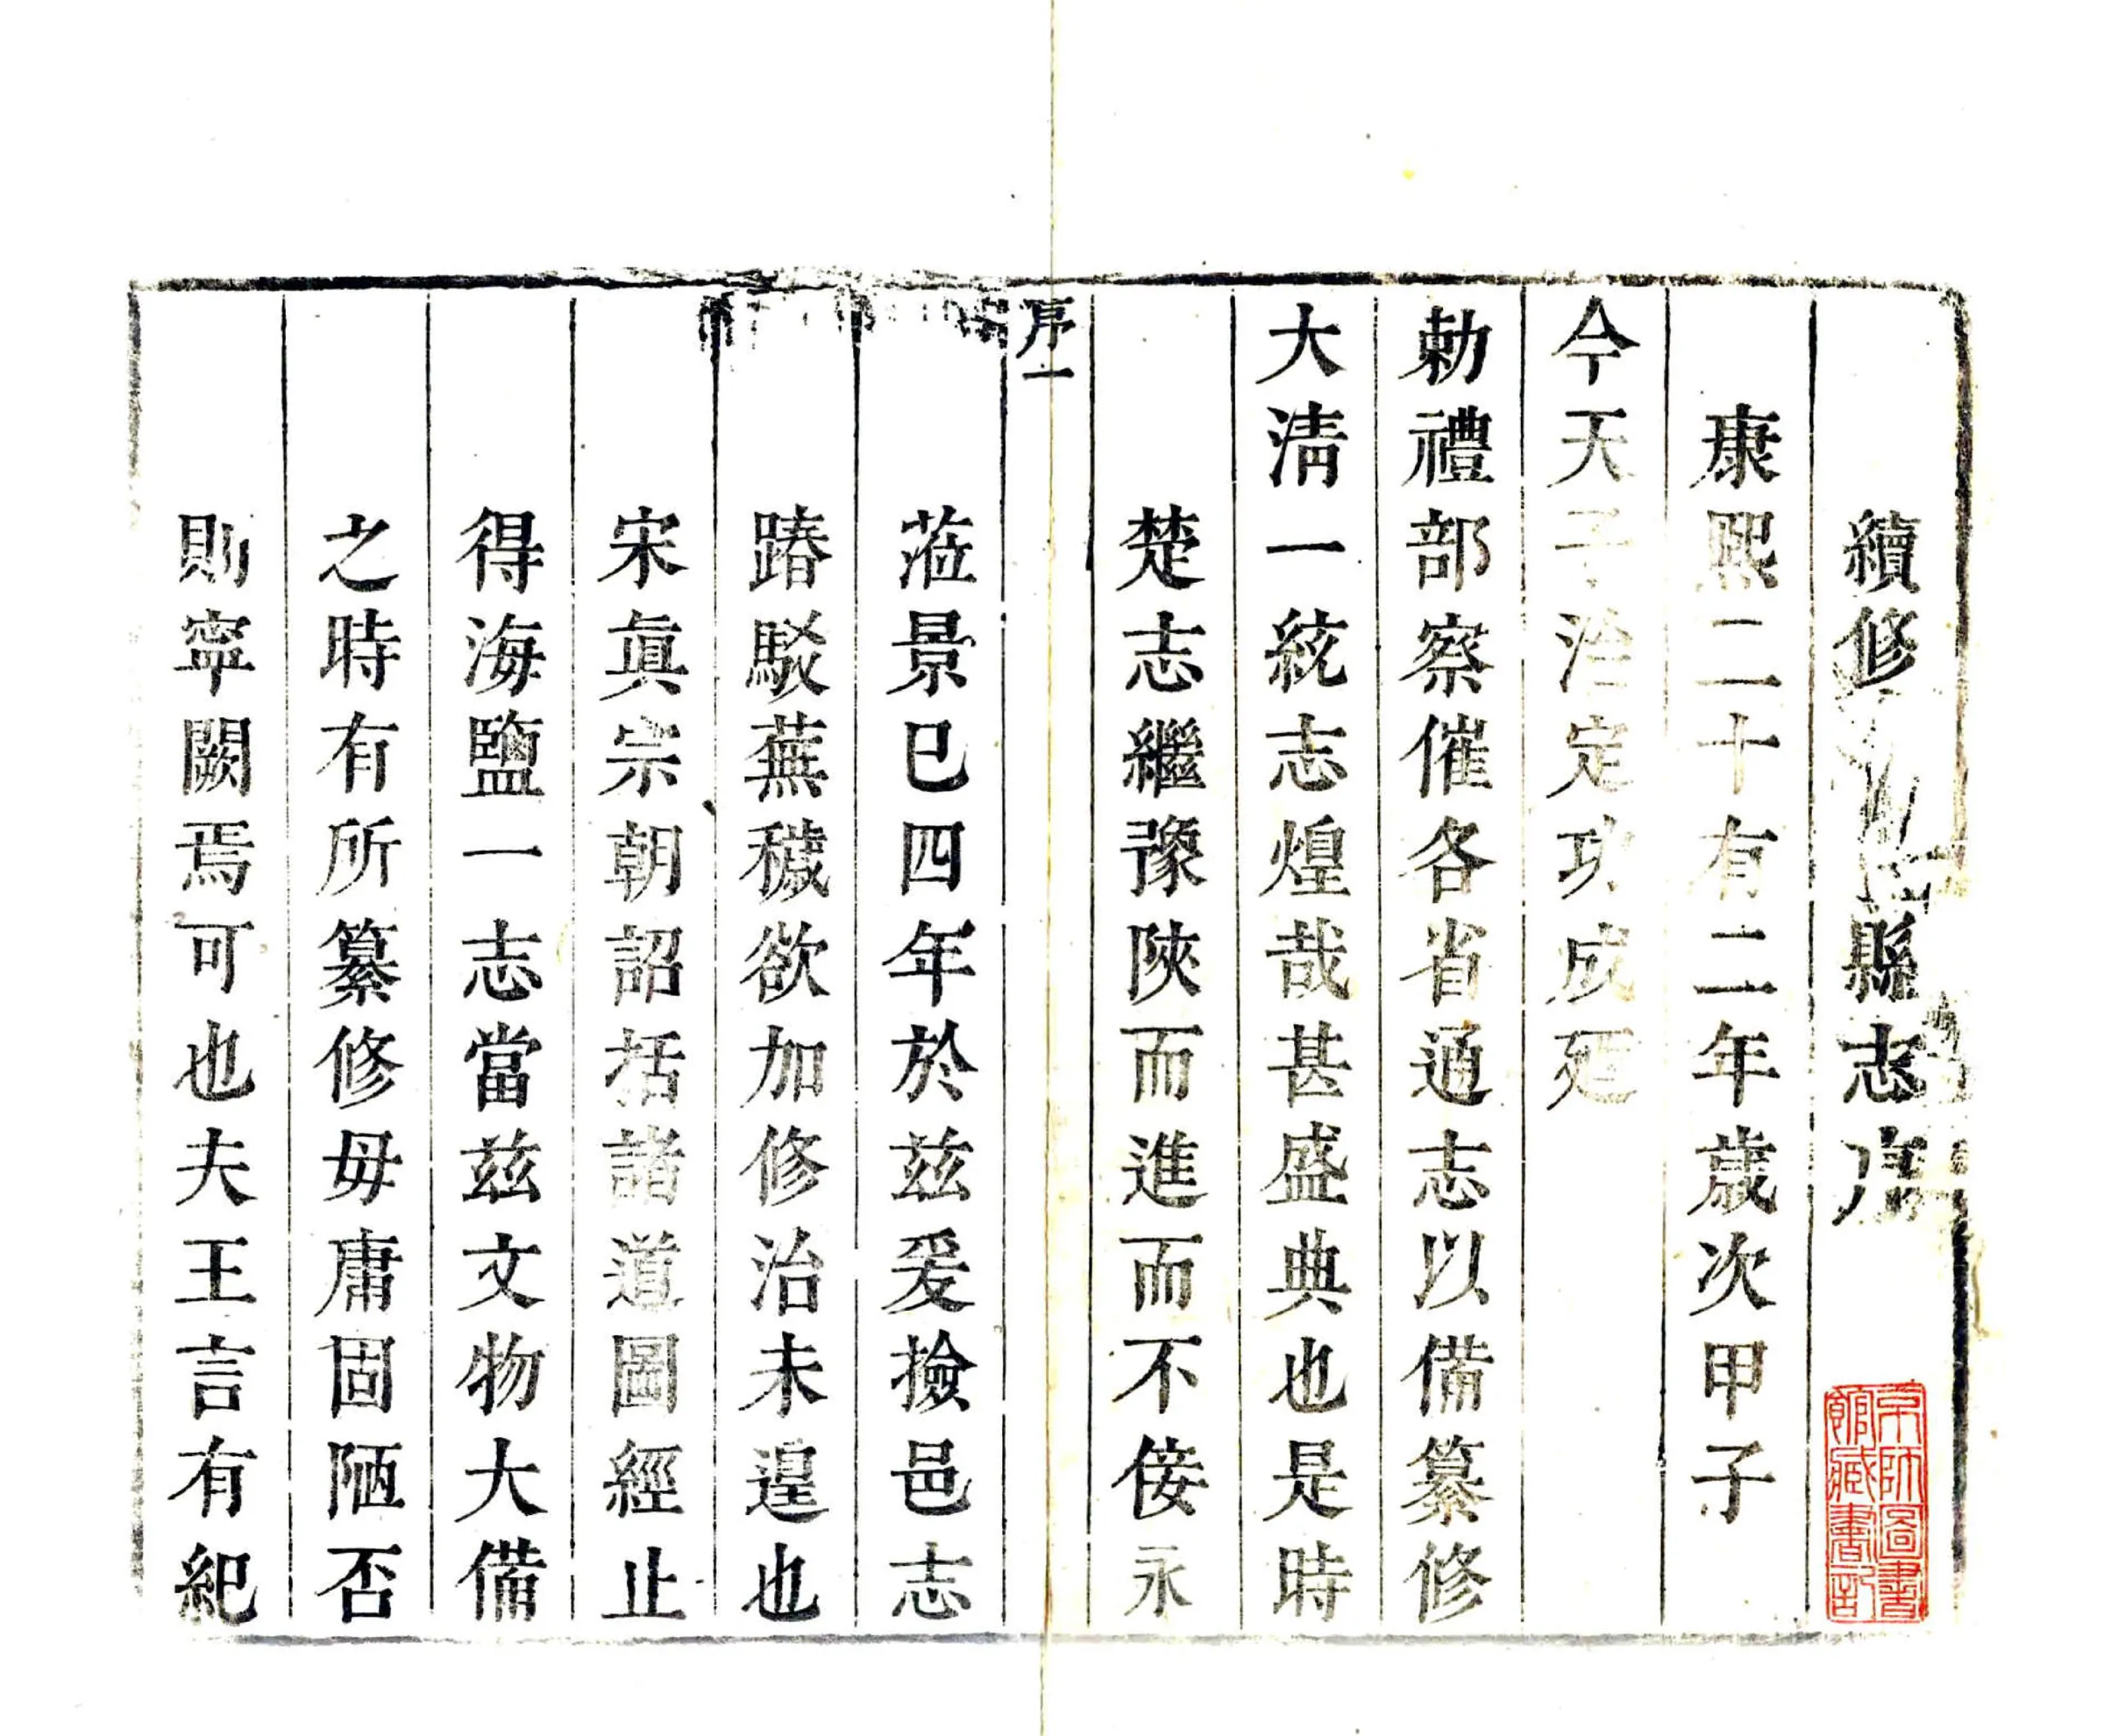 續修縣志序
康熙二十有二年歲次甲子
今天子治定功成廼
勅禮部察催各省通志以備纂修
大淸一統志煌哉甚盛典也是時
楚志繼豫陝而進而不佞永
序一
蒞景已四年於兹爰撿邑志
踳駁蕪穢欲加修治未遑也
宋眞宗朝詔括諸道圖經止
得海鹽一志當兹文物大備
之時有所纂修毋庸固陋否
則寧闕焉可也夫王言有紀
京師圖書
館藏書記